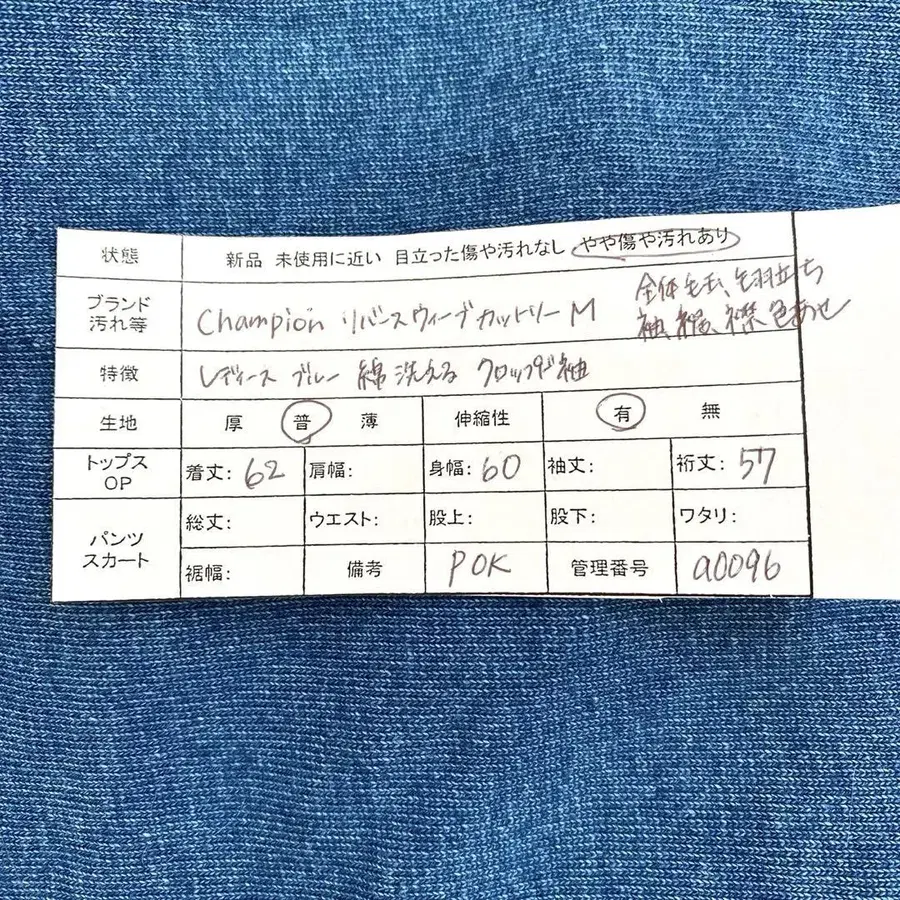 状態 新品 未使用に近い 目立った傷や汚れなし やや傷や汚れあり
ブランド
汚れ等
Champion リバースウィーブ カットソー M
全体毛玉、毛羽立ち
袖、裾、襟色あせ
特徴 レディース ブルー 綿 洗える クロップド袖
生地 厚 普 薄 伸縮性 有 無
トップス
OP
着丈: 62 肩幅: 身幅: 60 袖丈: 裄丈: 57
パンツ
スカート
総丈: ウエスト: 股上: 股下: ワタリ:
裾幅: 備考 POK 管理番号 a0096